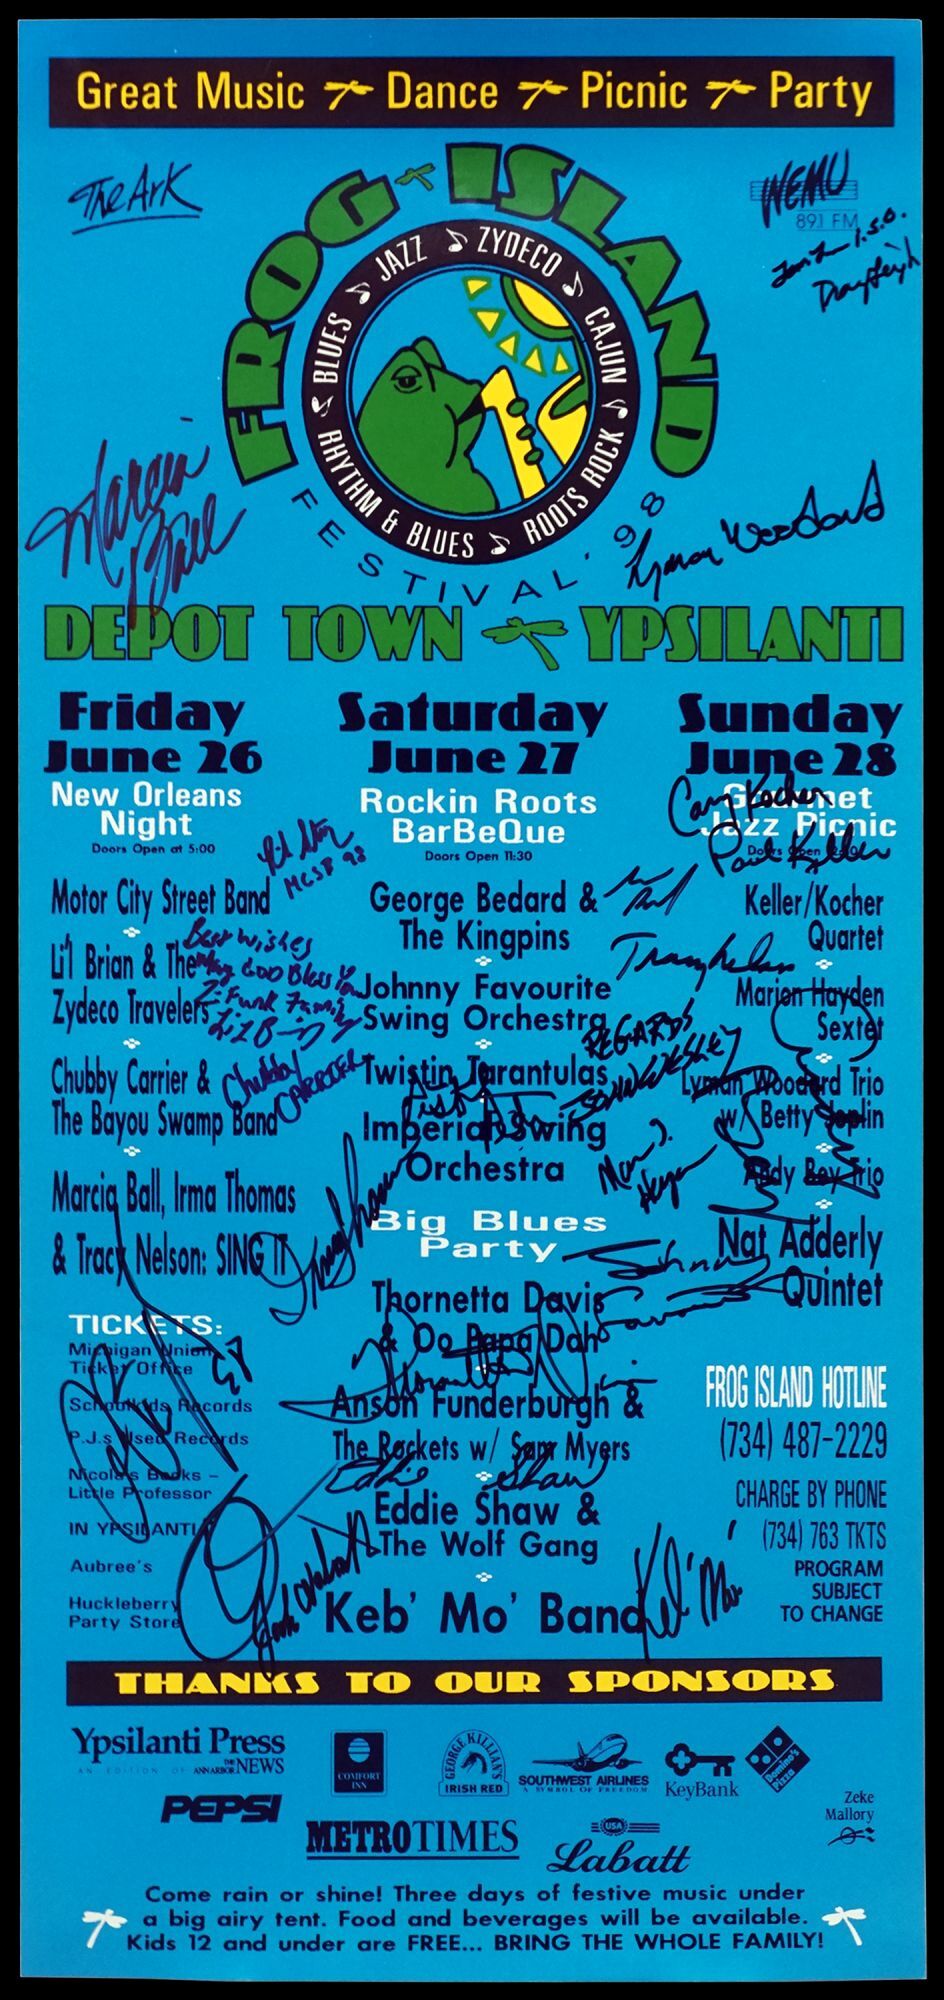 Great Music Dance Picnic Party
The Ark
WEMU
89.1 FM
FROG ISLAND
BLUES JAZZ ZYDECO CAJUN ROOTS ROCK RHYTHM & BLUES
FESTIVAL '98
Marcia
Ball
Lyman Woodard
DEPOT TOWN YPSILANTI
Friday
June 26
New Orleans
Night
Doors Open at 5:00
MCSB 98
Motor City Street Band
Li'l Brian & The
Zydeco Travelers
Best Wishes
May GOD Bless You
Z-Funk Family
Chubby Carrier &
The Bayou Swamp Band
Chubby
CARRIER
Marcia Ball, Irma Thomas
& Tracy Nelson: SING IT
Saturday
June 27
Rockin Roots
BarBeQue
Doors Open 11:30
George Bedard &
The Kingpins
Johnny Favourite
Swing Orchestra
Twistin Tarantulas
Imperial Swing
Orchestra
Tracy Nelson
REGARDS
Irma Thomas
Big Blues
Party
Thornetta Davis
& Oo Papa Dah
Anson Funderburgh &
The Rockets w/ Sam Myers
Eddie Shaw
Eddie Shaw &
The Wolf Gang
Keb' Mo' Band
Keb' Mo'
Sunday
June 28
Gourmet
Jazz Picnic
Doors Open
Cary Kocher
Paul Keller
Keller/Kocher
Quartet
Marion Hayden
Sextet
Lyman Woodard Trio
w/ Betty Joplin
Andy Bey Trio
Nat Adderly
Quintet
TICKETS:
Michigan Union
Ticket Office
Schoolkids Records
P.J.s Used Records
Nicola's Books –
Little Professor
IN YPSILANTI
Aubree's
Huckleberry
Party Store
FROG ISLAND HOTLINE
(734) 487-2229
CHARGE BY PHONE
(734) 763 TKTS
PROGRAM
SUBJECT
TO CHANGE
THANKS TO OUR SPONSORS
Ypsilanti Press
AN EDITION OF THE ANN ARBOR NEWS
COMFORT
INN
GEORGE KILLIAN'S
IRISH RED
SOUTHWEST AIRLINES
A SYMBOL OF FREEDOM
KeyBank
Domino's
Pizza
PEPSI
METROTIMES
USA
Labatt
Zeke
Mallory
Come rain or shine! Three days of festive music under
a big airy tent. Food and beverages will be available.
Kids 12 and under are FREE... BRING THE WHOLE FAMILY!